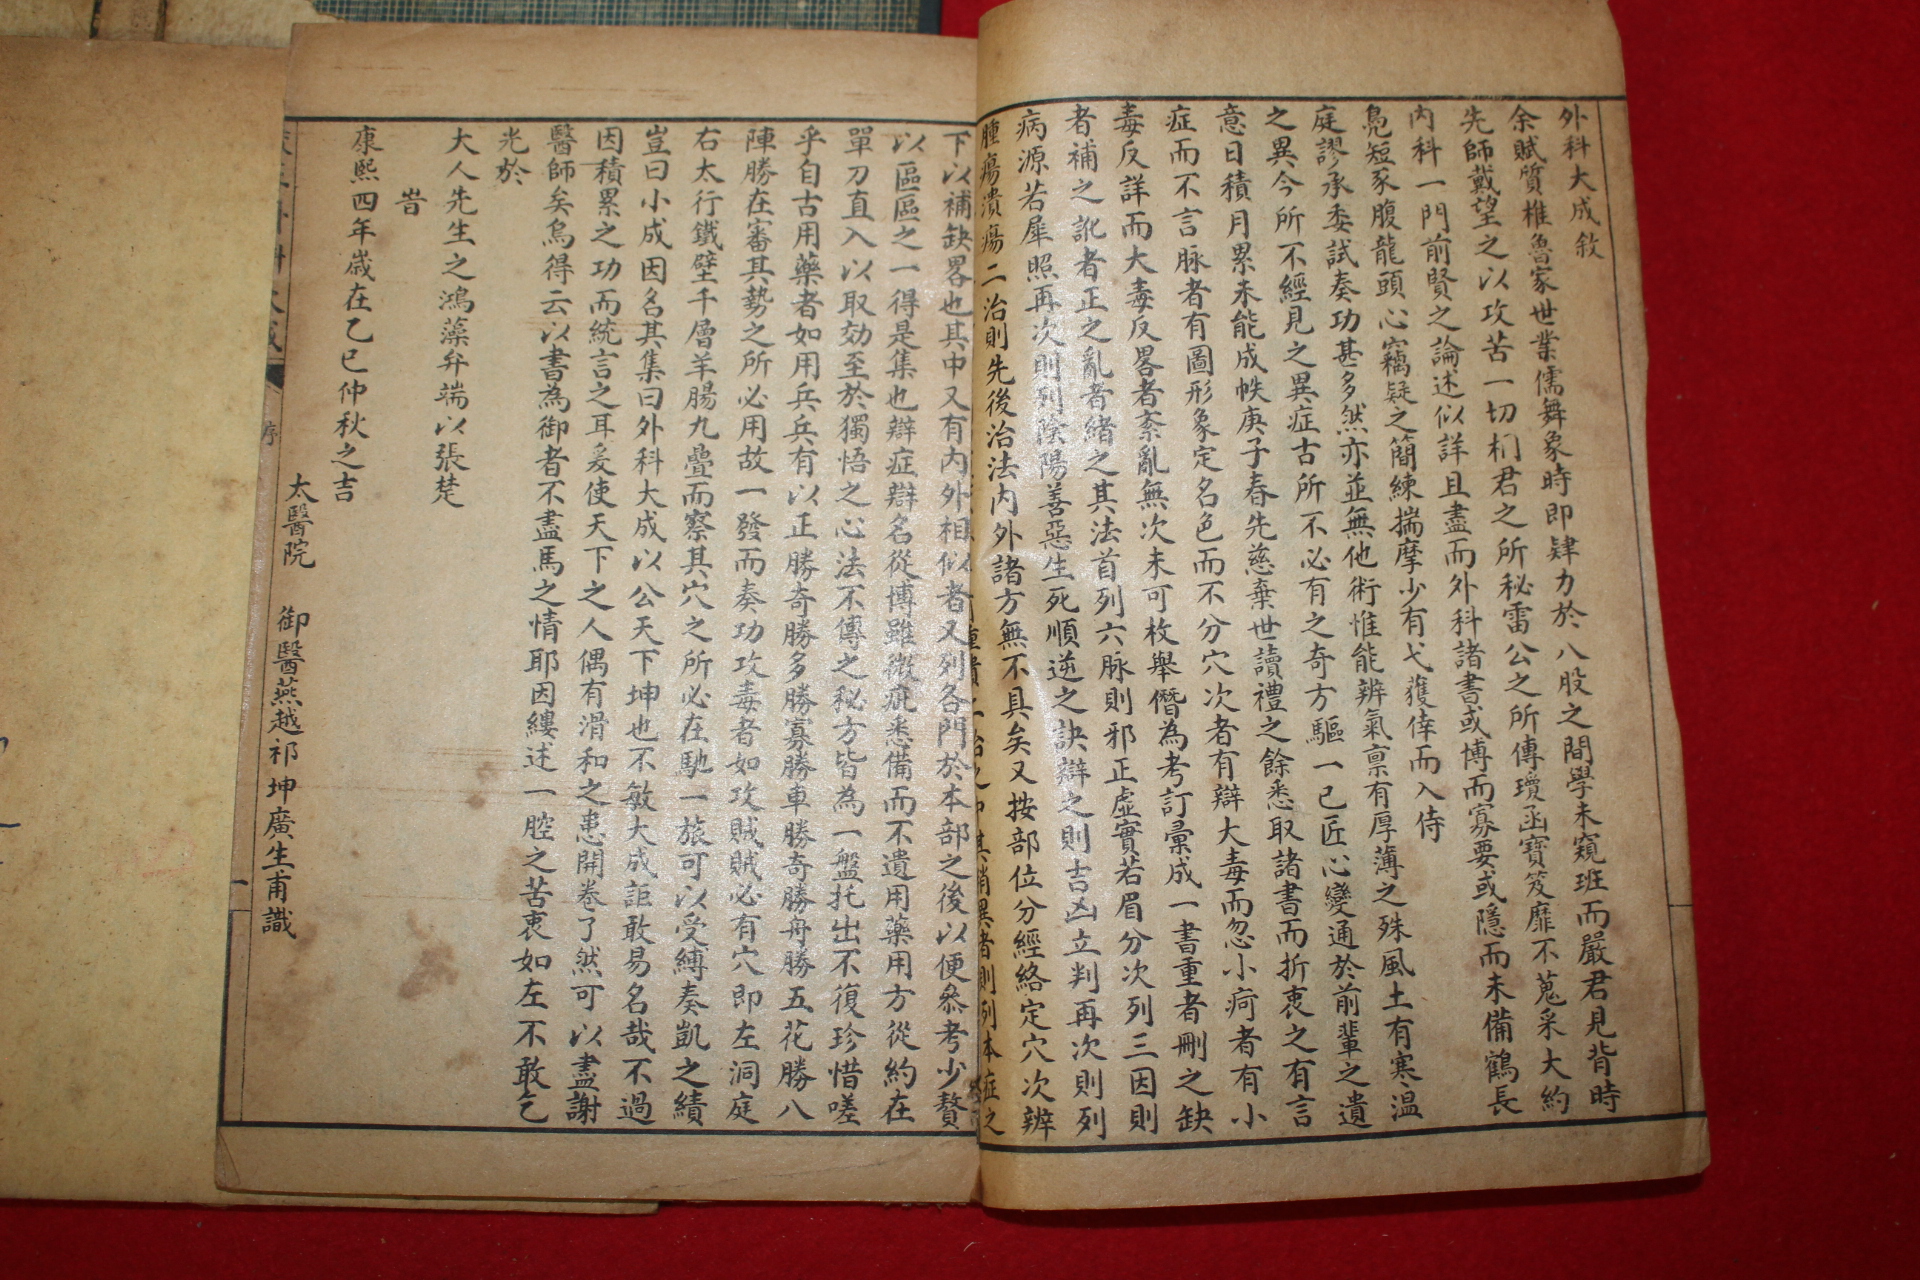 外科大成敘
余賦質椎魯家世業儒舞象時即肄力於八股之間學未窺班而嚴君見背時
先師戴望之以攻苦一切枬君之所秘雷公之所傳瓊函寶笈靡不蒐采大約
內科一門前賢之論述似詳且盡而外科諸書或博而寡要或隱而未備鶴長
鳧短豕腹龍頭心竊疑之簡練揣摩少有弋獲倖而入侍
庭謬承委試奏功甚多然亦並無他術惟能辨氣禀有厚薄之殊風土有寒溫
之異今所不經見之異症古所不必有之奇方驅一己匠心變通於前輩之遺
意日積月累未能成帙庚子春先慈棄世讀禮之餘悉取諸書而折衷之有言
症而不言脉者有圖形象定名色而不分穴次者有辯大毒而忽小疴者有小
毒反詳而大毒反畧者紊亂無次未可枚舉僭為考訂彙成一書重者刪之缺
者補之訛者正之亂者緒之其法首列六脉則邪正虛實若眉分次列三因則
病源若犀照再次則列陰陽善惡生死順逆之訣辯之則吉凶立判再次則列
腫瘍潰瘍二治則先後治法內外諸方無不具矣又按部位分經絡定穴次辨
下以補缺畧也其中又有內外相似者又列各門於本部之後以便叅考少贅
以區區之一得是集也辯症辯名從博雖微疵悉備而不遺用藥用方從約在
單刀直入以取効至於獨悟之心法不傳之秘方皆為一盤托出不復珍惜嗟
乎自古用藥者如用兵兵有以正勝奇勝多勝寡勝車勝奇勝舟勝五花勝八
陣勝在審其勢之所必用故一發而奏功攻毒者如攻賊賊必有穴即左洞庭
右太行鐵壁千層羊腸九疊而察其穴之所必在馳一旅可以受縛奏凱之績
豈曰小成因名其集曰外科大成以公天下坤也不敏大成詎敢易名哉不過
因積累之功而統言之耳爰使天下之人偶有滑和之患開卷了然可以盡謝
醫師矣烏得云以書為御者不盡馬之情耶因縷述一腔之苦衷如左不敢乞
光於
大人先生之鴻藻弁端以張楚
旹
康熙四年歲在乙巳仲秋之吉
太醫院 御醫燕越祁坤廣生甫識
序
一